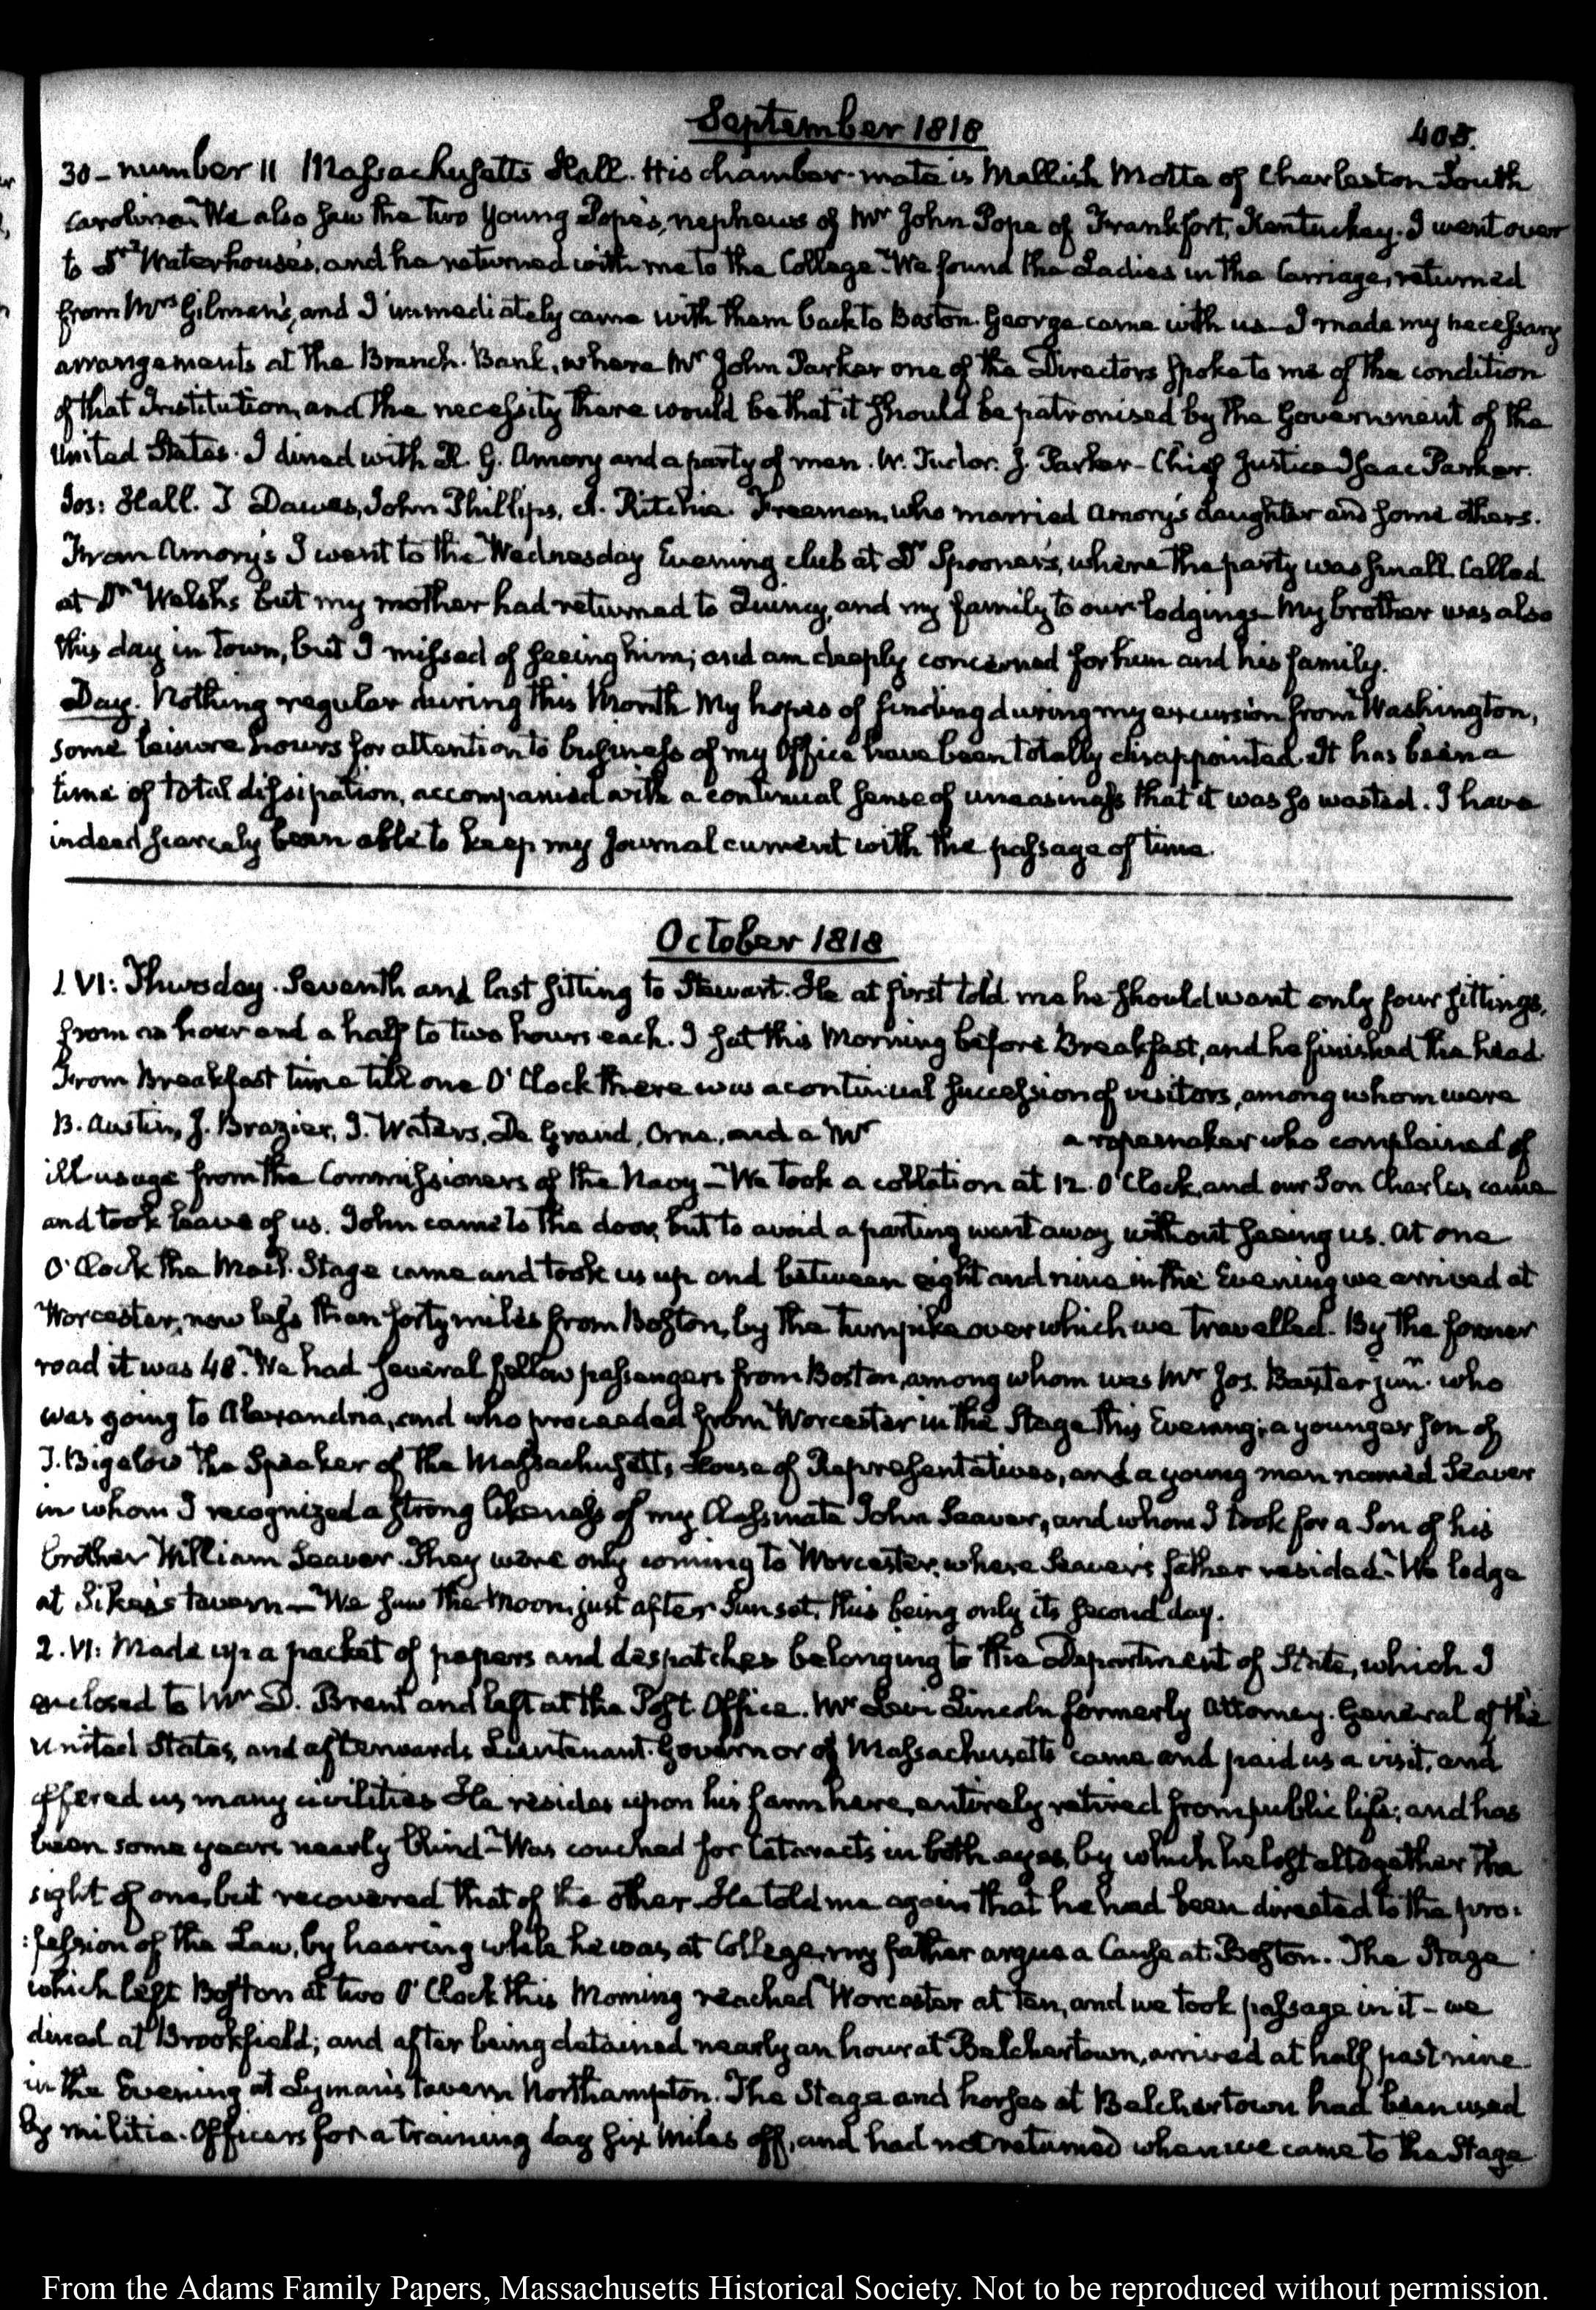 September 1818
405.
30 - number 11 Massachusetts Hall. His chamber-mate is Mellish Motte of Charleston South
Carolina. We also saw the two young Pope's, nephews of Mr John Pope of Frankfort, Kentucky. I went over
to Dr Waterhouse's, and he returned with me to the College. We found the Ladies in the Carriage, returned
from Mrs Gilman's, and I immediately came with them back to Boston. George came with us. I made my necessary
arrangements at the Branch-Bank, where Mr John Parker one of the Directors spoke to me of the condition
of that Institution, and the necessity there would be that it should be patronised by the Government of the
United States. I dined with R. G. Amory and a party of men. W. Tudor. J. Parker - Chief Justice Isaac Parker.
Jos: Hall. T Dawes, John Phillips, A. Ritchie. Freeman, who married Amory's daughter and some others.
From Amory's I went to the Wednesday Evening club at Dr Spooner's, where the party was small. Called
at Dr Welsh's but my mother had returned to Quincy, and my family to our lodgings. My brother was also
this day in town, but I missed of seeing him; and am deeply concerned for him and his family.
Day. Nothing regular during this Month. My hopes of finding during my excursion from Washington,
some leisure hours for attention to business of my Office have been totally disappointed. It has been a
time of total dissipation, accompanied with a continual sense of uneasiness that it was so wasted. I have
indeed scarcely been able to keep my Journal current with the passage of time.
October 1818
1. VI: Thursday. Seventh and last sitting to Stewart. He at first told me he should want only four sittings,
from an hour and a half to two hours each. I sat this Morning before Breakfast, and he finished the head.
From Breakfast time till one O'Clock there was a continual succession of visitors, among whom were
B. Austin, J. Brazier, J. Waters, De Grand, Orne, and a Mr a ropemaker who complained of
ill usage from the Commissioners of the Navy - We took a collation at 12. O'Clock, and our Son Charles came
and took leave of us. John came to the door, but to avoid a parting went away without seeing us. At one
O'Clock the Mail-Stage came and took us up and between eight and nine in the Evening we arrived at
Worcester, now less than forty miles from Boston, by the turnpike over which we travelled. By the former
road it was 48. We had several fellow passengers from Boston, among whom was Mr Jos. Baxter junr. who
was going to Alexandria, and who proceeded from Worcester in the Stage this Evening; a younger son of
T. Bigelow the Speaker of the Massachusetts House of Representatives, and a young man named Seaver
in whom I recognized a strong likeness of my Classmate John Seaver, and whom I took for a Son of his
brother William Seaver. They were only coming to Worcester, where Seaver's father resided. We lodge
at Sikes's tavern - We saw the Moon, just after Sunset, this being only its second day.
2. VI: Made up a packet of papers and despatches belonging to the Department of State, which I
enclosed to Mr D. Brent and left at the Post-Office. Mr Levi Lincoln formerly Attorney-General of the
United States, and afterwards Lieutenant-Governor of Massachusetts came and paid us a visit, and
offered us many civilities. He resides upon his farm here, entirely retired from public life; and has
been some years nearly blind - Was couched for Cataracts in both eyes, by which he lost altogether the
sight of one, but recovered that of the other. He told me again that he had been directed to the pro:
:fession of the Law, by hearing while he was at College, my father argue a Cause at Boston. The Stage
which left Boston at two O'Clock this Morning reached Worcester at ten, and we took passage in it - we
dined at Brookfield; and after being detained nearly an hour at Belchertown, arrived at half past nine
in the Evening at Lyman's tavern Northampton. The Stage and horses at Belchertown had been used
by militia-Officers for a training day six miles off, and had not returned when we came to the Stage
From the Adams Family Papers, Massachusetts Historical Society. Not to be reproduced without permission.